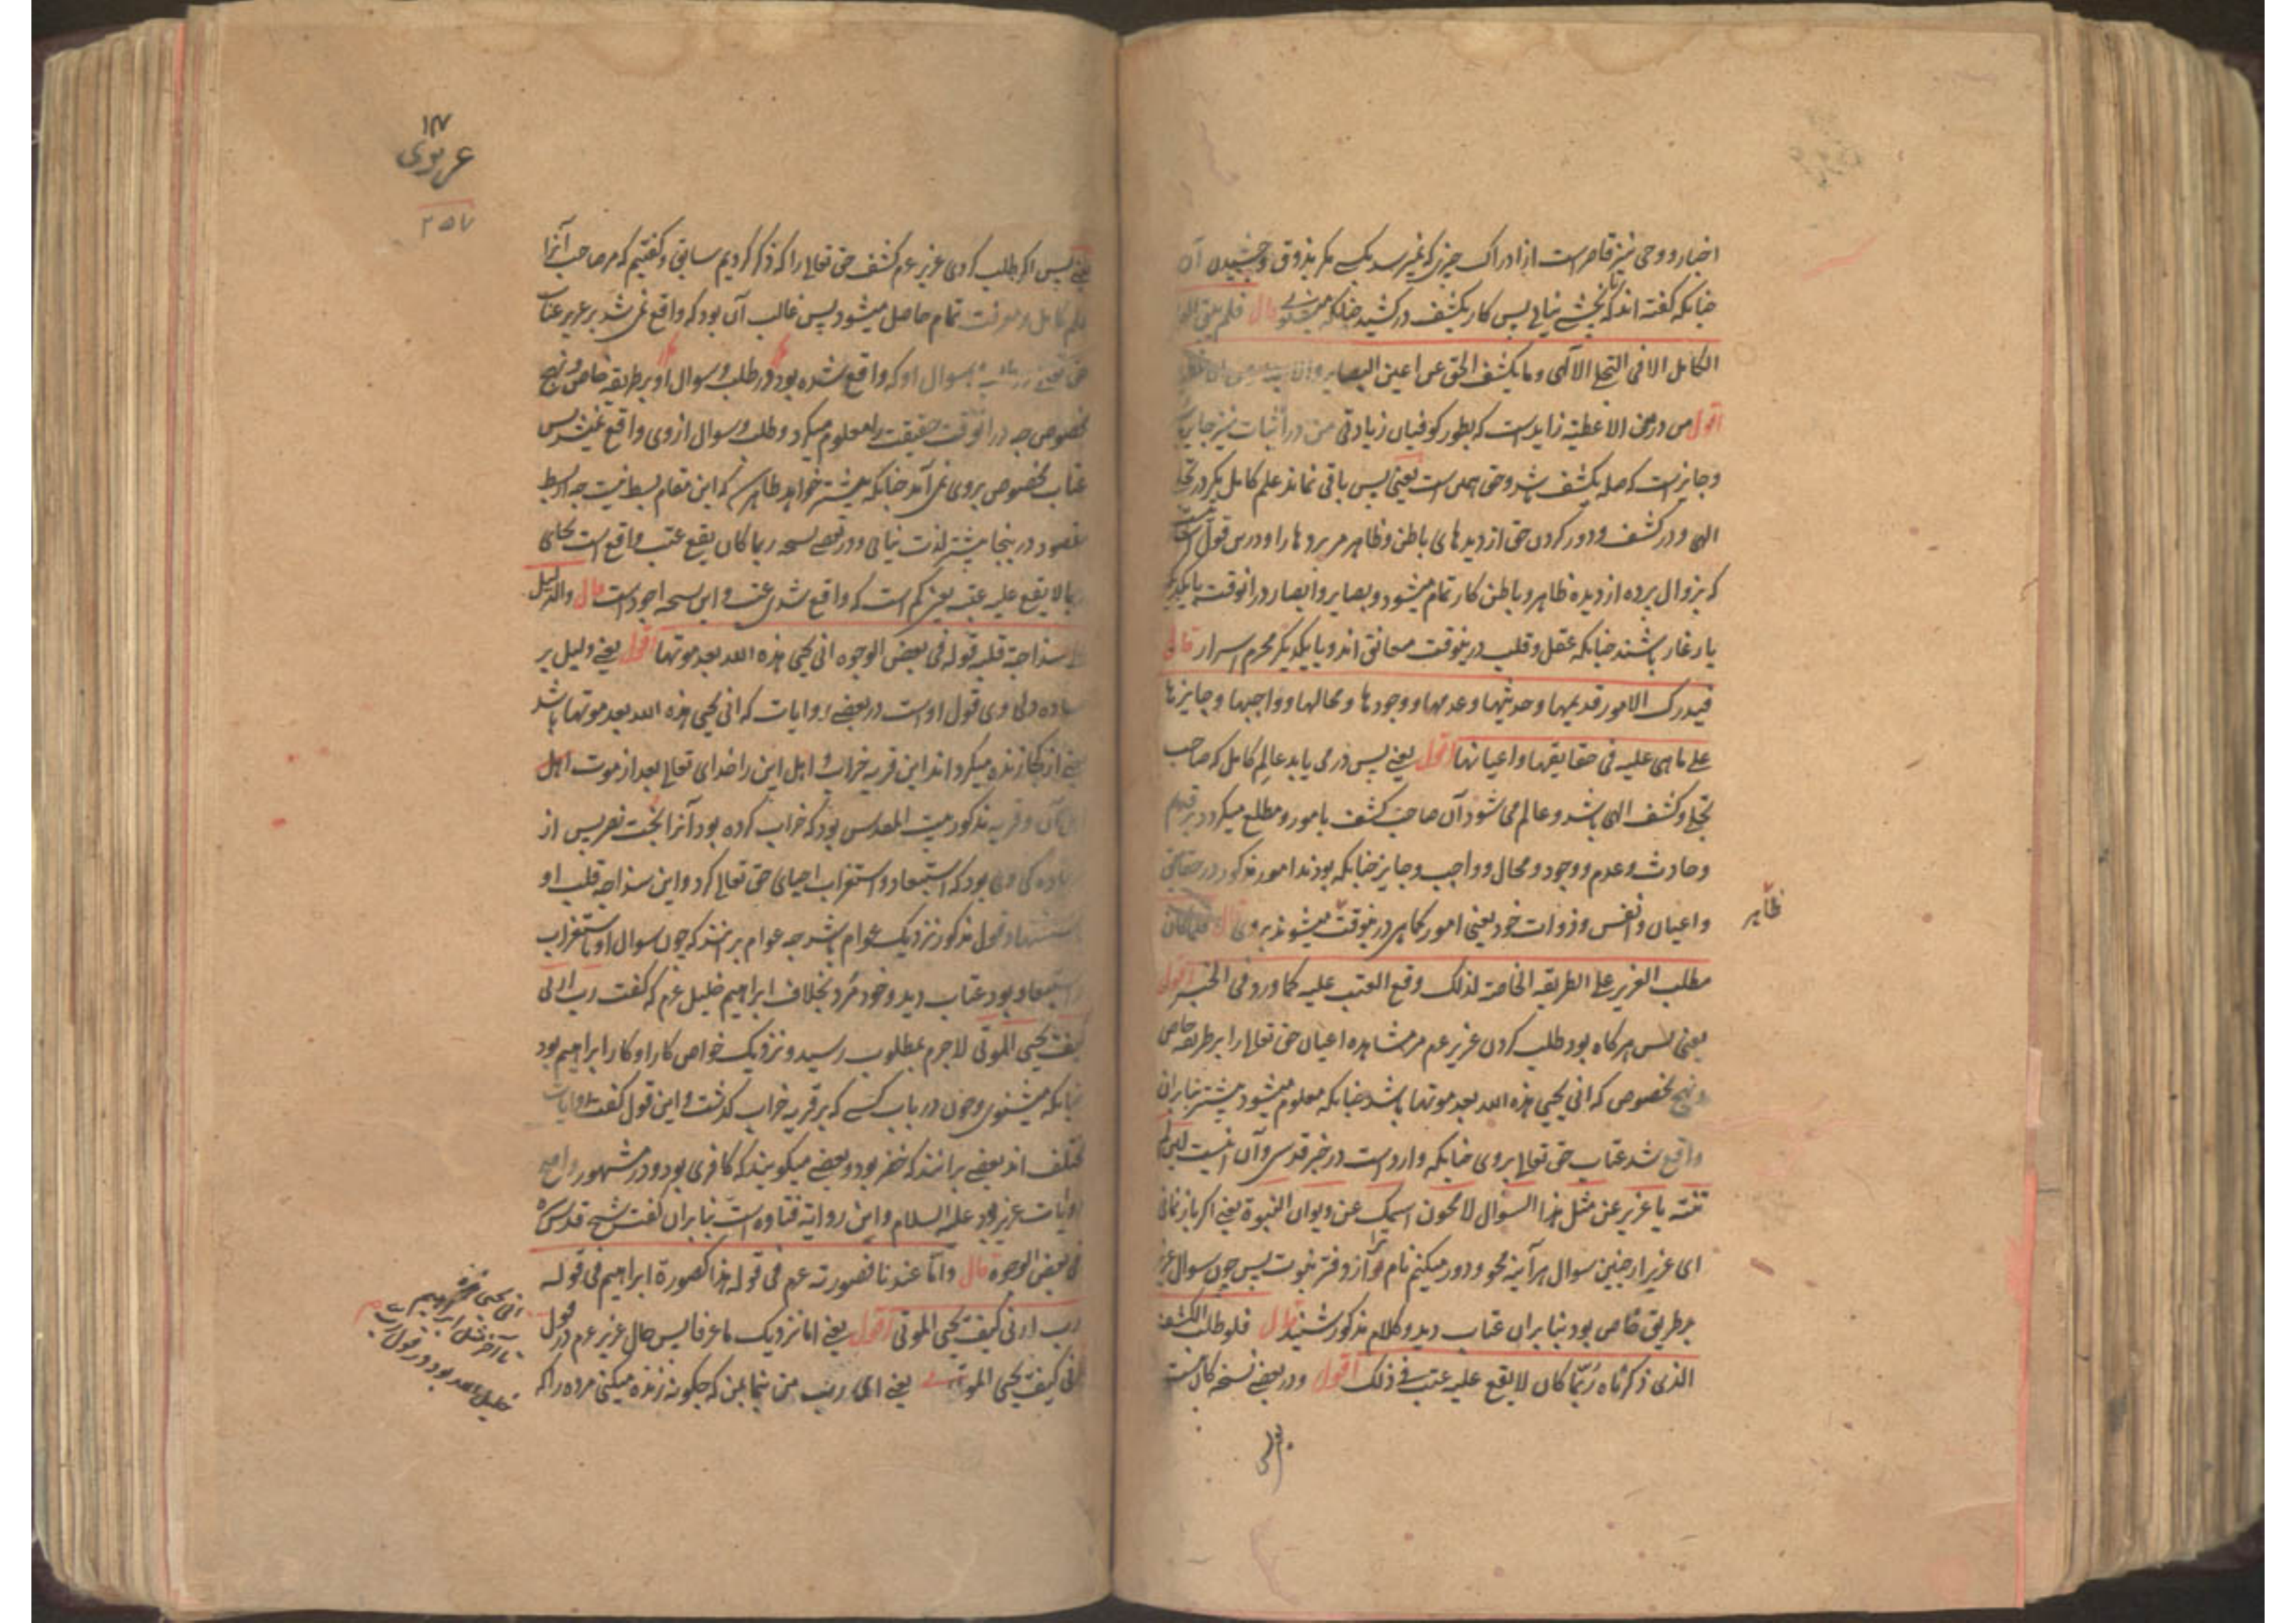 اخبار و وحی نیز قاصر است از ادراک چیزی که نمیرسد بکسی مگر بذوق و چشیدن آن
چنانکه گفته اند که تا نچشی نیابی پس کار بکشف در کشید چنانکه میشنوی قال فلم یبق العلم
الکامل الا فی التجلی الآلهی و ما یکشف الحق عن اعین البصایر والابصار من الاغطیة
اقول من در من الاغطیة زاید است که بطور کوفیان زیادتی من در اثبات نیز جایز
و جایز است که صله یکشف باشد و حق همان است یعنی پس باقی نماند علم کامل مگر در تجلی
الهی و در کشف و دور کردن حق از دیده های باطن و ظاهر مر پرده ها را و درین قول
که بزوال پرده از دیده ظاهر و باطن کار تمام میشود و بصایر و ابصار در آنوقت با یکدیگر
یار غار باشند چنانکه عقل و قلب درینوقت معانق اند و با یکدیگر محرم اسرار قال
فیدرک الامور قدیمها و حدیثها و عدمها و وجودها و محالها و واجبها و جایزها
علی ما هی علیه فی حقایقها و اعیانها اقول یعنی پس در می یابد عالم کامل که صاحب
تجلی و کشف الهی باشد و عالم می شود آن صاحب کشف بامور و مطلع میکردد بر قدیم
و حادث و عدم و وجود و محال و واجب و جایز چنانکه بودند امور مذکور در حقایق
و اعیان و انفس و ذوات خود یعنی امور کماهی درینوقت میشوند بر وی قال فلما کان
ظاهر
مطلب العزیر علی الطریقه الخاصة لذلک وقع العتب علیه کما ورد فی الخبر اقول
یعنی پس هر کاه بود طلب کردن عزیر عم مر مشاهده اعیان حق تعالی را بر طریقه خاص
و نهج مخصوص که انی یحیی هذه الله بعد موتها باشد چنانکه معلوم میشود پیشتر بنابران
واقع شد عتاب حق تعالی بر وی چنانکه وارد است در خبر قدسی و آن اینست لئن لم
تنته یا عزیر عن مثل هذا السؤال لامحون اسمک عن دیوان النبوة یعنی اگر باز نمانی
ای عزیر از چنین سوال هر آینه محو و دور میکنم نام ترا از دفتر نبوت پس چون سوال عزیر
بر طریق خاص بود بنابران عتاب دید و کلام مذکور شنید قال فلو طلب الکشف
الذی ذکرناه ربما کان لا یقع علیه عتب فی ذلک اقول و در بعضی نسخه کان است
یعنی
۱۴۷
عزیری
۲۵۷
یعنی پس اگر طلب کردی عزیر عم کشف حق تعالی را که ذکر کردیم سابق و گفتیم که مر صاحب آنرا
علم کامل و معرفت تمام حاصل میشود پس غالب آن بود که واقع نمی شد بر عزیر عتاب
حق تعالی سوال او که واقع شده بود در طلب و سوال او بر طریقه خاص و نهج
مخصوص چه در آنوقت حقیقت را معلوم میکرد و طلب و سوال از وی واقع نمیشد پس
عتاب مخصوص بر وی نمی آمد چنانکه پیشتر خواهد ظاهر شد که این مقام بسط نیست چه از بسط
مقصود درینجا پیشتر لذت نیابی و در بعضی نسخه ربما کان یقع عتب واقع است بجای
ربما لا یقع علیه عتب یعنی کم است که واقع شدی عتب و این نسخه اجود است قال والدلیل
علی سذاجة قلبه قوله فی بعض الوجوه انی یحیی هذه الله بعد موتها اقول یعنی دلیل بر
ساده دلی وی قول او است در بعضی روایات که انی یحیی هذه الله بعد موتها باشد
یعنی از کجا زنده میکرداند این قریه خراب و اهل این را خدای تعالی بعد از موت اهل
آن و قریه مذکور بیت المقدس بود که خراب کرده بود آنرا بخت نصر پس از
ساده دلی وی بود که استبعاد و استغراب احیای حق تعالی کرد و این سذاجه قلب او
قول مذکور نزدیک عوام باشد چه عوام بر انند که چون سوال او باستغراب
و استبعاد بود عتاب دید و خود مرد بخلاف ابراهیم خلیل عم که گفت رب ارنی
کیف تحیی الموتی لاجرم بمطلوب رسید و نزدیک خواص کار او کار ابراهیم بود
چنانکه میشنوی و چون در باب کسی که بر قریه خراب گذشت و این قول گفت روایات
مختلف اند بعضی بر انند که خضر بود و بعضی میکویند که کافری بود و در مشهور و اصح
روایات عزیر بود علیه السلام و این روایة قتاده است بنابران گفت شیخ قدس سره
فی بعض الوجوه قال و اما عندنا فصورته عم فی قوله هذا کصورة ابراهیم فی قوله
رب ارنی کیف تحیی الموتی اقول یعنی اما نزدیک ما عرفا پس حال عزیر عم در قول
انی یحیی هذه
تا آخر مثل ابراهیم
خلیل الله بود در قول رب
ارنی کیف تحیی الموتی یعنی ای رب من بنما بمن که چکونه زنده میکنی مرده را که